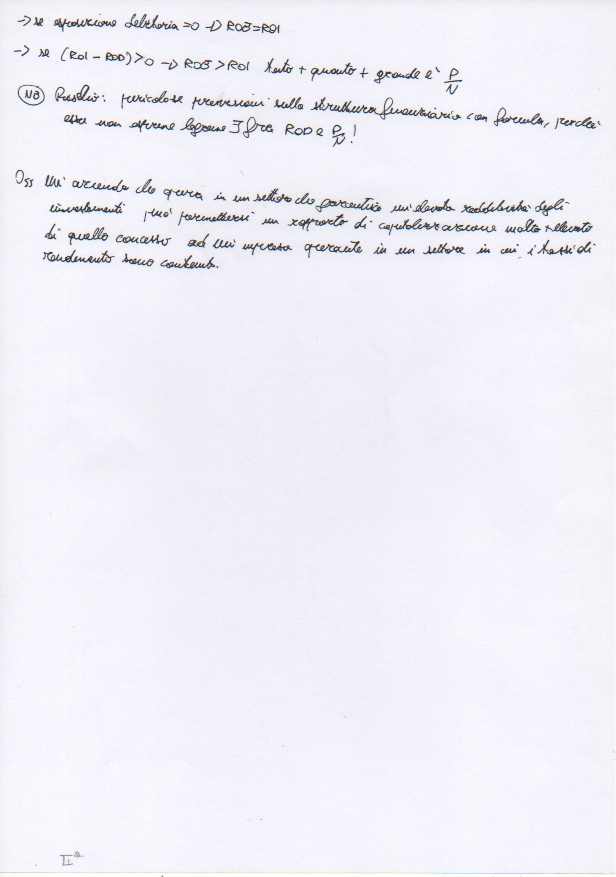 → se esposizione debitoria = 0 → ROE = ROI
→ se (ROI - ROD) > 0 → ROE > ROI tanto + quanto + grande è P/N
NB : pericolose previsioni sulla struttura finanziaria con formula, perché
essa non esprime legame ∃ fra ROD e P/N !
Oss Un'azienda che opera in un settore che garantisce un'elevata redditività degli
investimenti può permettersi un rapporto di capitalizzazione molto + elevato
di quello concesso ad un'impresa operante in un settore in cui i tassi di
rendimento sono contenuti.
II